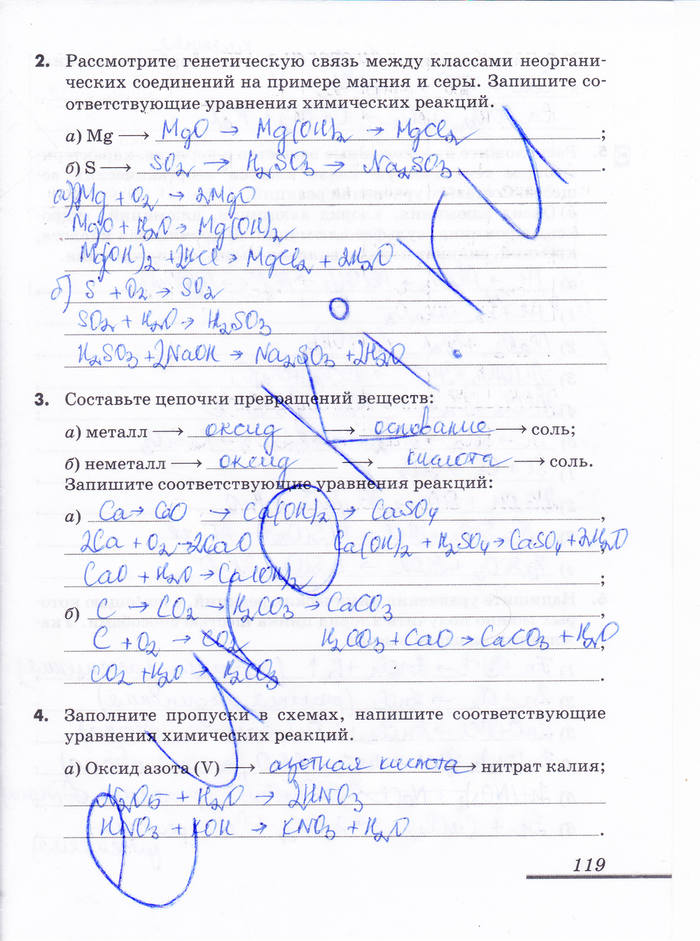 2. Рассмотрите генетическую связь между классами неоргани-
ческих соединений на примере магния и серы. Запишите со-
ответствующие уравнения химических реакций.
а) Mg → MgO → Mg(OH)₂ → MgCl₂ ;
б) S → SO₂ → H₂SO₃ → Na₂SO₃ .
а) 2Mg + O₂ → 2MgO
MgO + H₂O → Mg(OH)₂
Mg(OH)₂ + 2HCl → MgCl₂ + 2H₂O
б) S + O₂ → SO₂
SO₂ + H₂O → H₂SO₃
H₂SO₃ + 2NaOH → Na₂SO₃ + 2H₂O
3. Составьте цепочки превращений веществ:
а) металл → оксид → основание → соль;
б) неметалл → оксид → кислота → соль.
Запишите соответствующие уравнения реакций:
а) Ca → CaO → Ca(OH)₂ → CaSO₄ ,
2Ca + O₂ → 2CaO Ca(OH)₂ + H₂SO₄ → CaSO₄ + 2H₂O ,
CaO + H₂O → Ca(OH)₂ ;
б) C → CO₂ → H₂CO₃ → CaCO₃ ,
C + O₂ → CO₂ H₂CO₃ + CaO → CaCO₃ + H₂O ,
CO₂ + H₂O → H₂CO₃ .
4. Заполните пропуски в схемах, напишите соответствующие
уравнения химических реакций.
а) Оксид азота (V) → азотная кислота → нитрат калия;
N₂O₅ + H₂O → 2HNO₃
HNO₃ + KOH → KNO₃ + H₂O .
119